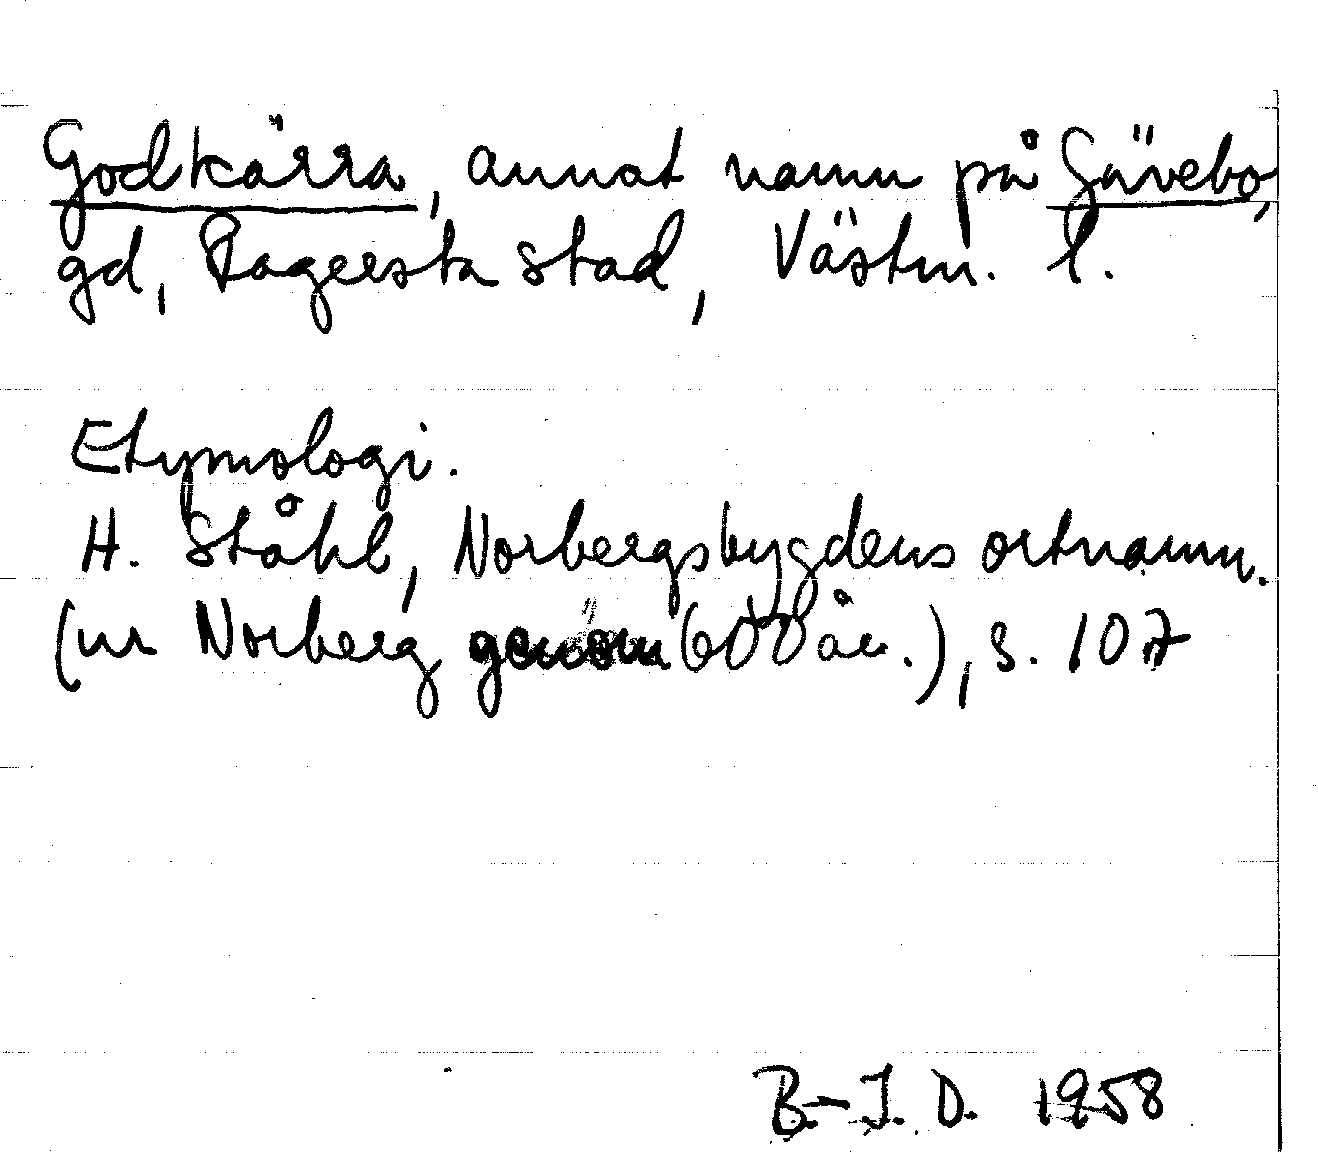 Godkärra, annat namn på Gävebo,
gd, Fagersta stad, Västm. l.
Etymologi.
H. Ståhl, Norbergsbygdens ortnamn.
(ur Norberg genom 600 år.), s. 107
B.-I. D. 1958